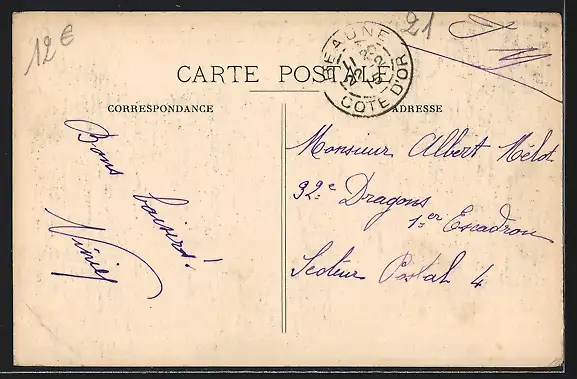 12€
21
BEAUNE
CÔTE D'OR
CARTE POSTALE
CORRESPONDANCE
ADRESSE
Bons baisers!
Monsieur Albert Mélot
92e Dragons
1er Escadron
Secteur Postal 4